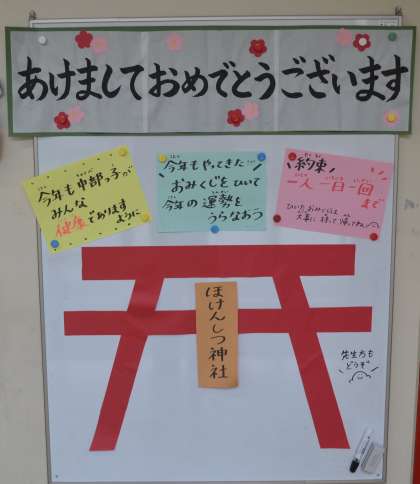 あけましておめでとうございます
今年も中部っ子が
みんな
健康でありますように
今年もやってきた…
おみくじをひいて
今年の運勢を
うらなおう
約束
一人一日一回
まで
ひいたおみくじは
大事に持って帰ってね
ほけんしつ神社
先生方も
どうぞ